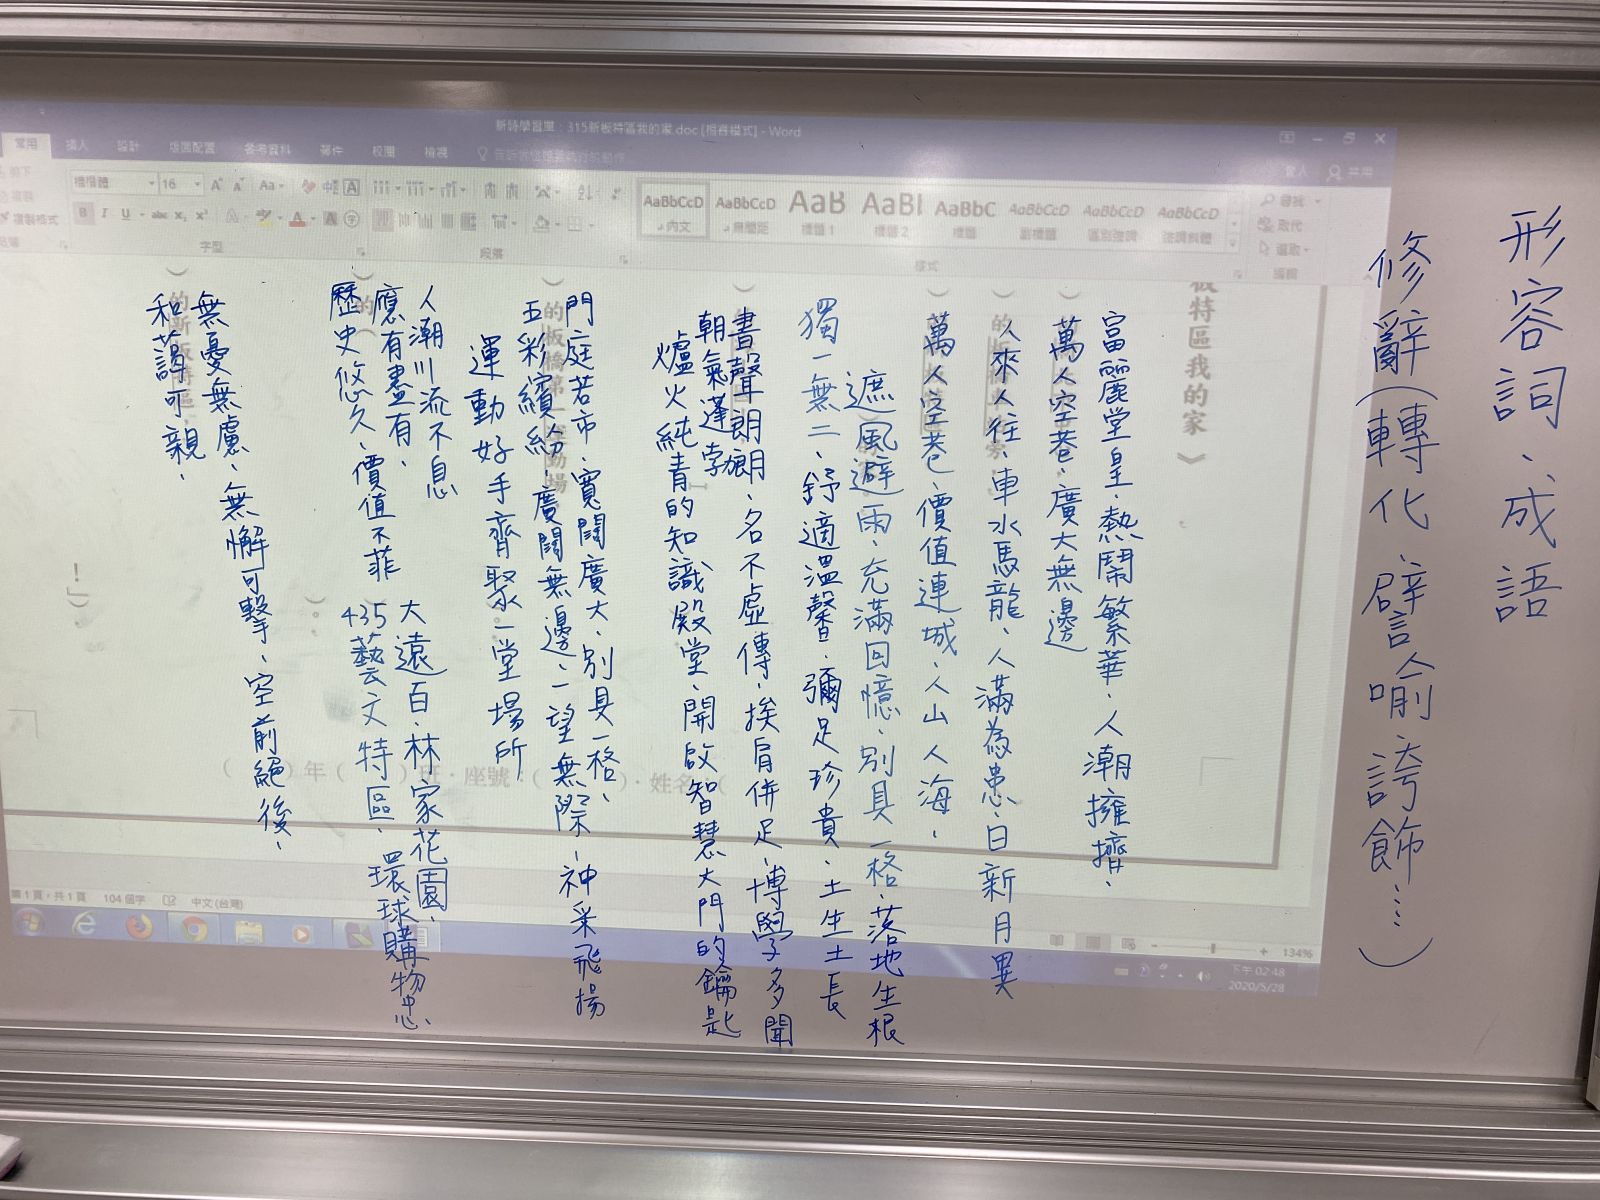 形容詞、成語
修辭(轉化、譬喻、誇飾…)
新詩學習單：315新板特區我的家.doc [相容模式] - Word
常用 插入 設計 版面配置 參考資料 郵件 校閱 檢視
登入 共用
標楷體 16
AaBbCcD AaBbCcD AaB AaBl AaBbC AaBbCcD AaBbCcD AaBbCcD
內文 無間距 標題 1 標題 2 標題 副標題 區別強調 強調斜體
尋找
取代
選取
複製格式
字型 段落 樣式 編輯
板特區我的家》
富麗堂皇、熱鬧繁華、人潮擁擠、
萬人空巷、廣大無邊
人來人往、車水馬龍、人滿為患、日新月異
萬人空巷、價值連城、人山人海、
遮風避雨、充滿回憶、別具一格、落地生根
獨一無二、舒適溫馨、彌足珍貴、土生土長
書聲朗朗、名不虛傳、挨肩併足、博學多聞
朝氣蓬孛
爐火純青的知識殿堂、開啟智慧大門的鑰匙
門庭若市、寬闊廣大、別具一格、
的板橋第一運動場
五彩繽紛、廣闊無邊、一望無際、神采飛揚
運動好手齊聚一堂場所
人潮川流不息
應有盡有、
歷史悠久、價值不菲
大遠百、林家花園、
435藝文特區、環球購物中心
無憂無慮、無懈可擊、空前絕後、
的新板特區
和藹可親、
！」
( )年( )班·座號：( )·姓名：(
第 1 頁，共 1 頁 104 個字 中文(台灣)
134%
下午 02:48
2020/5/28